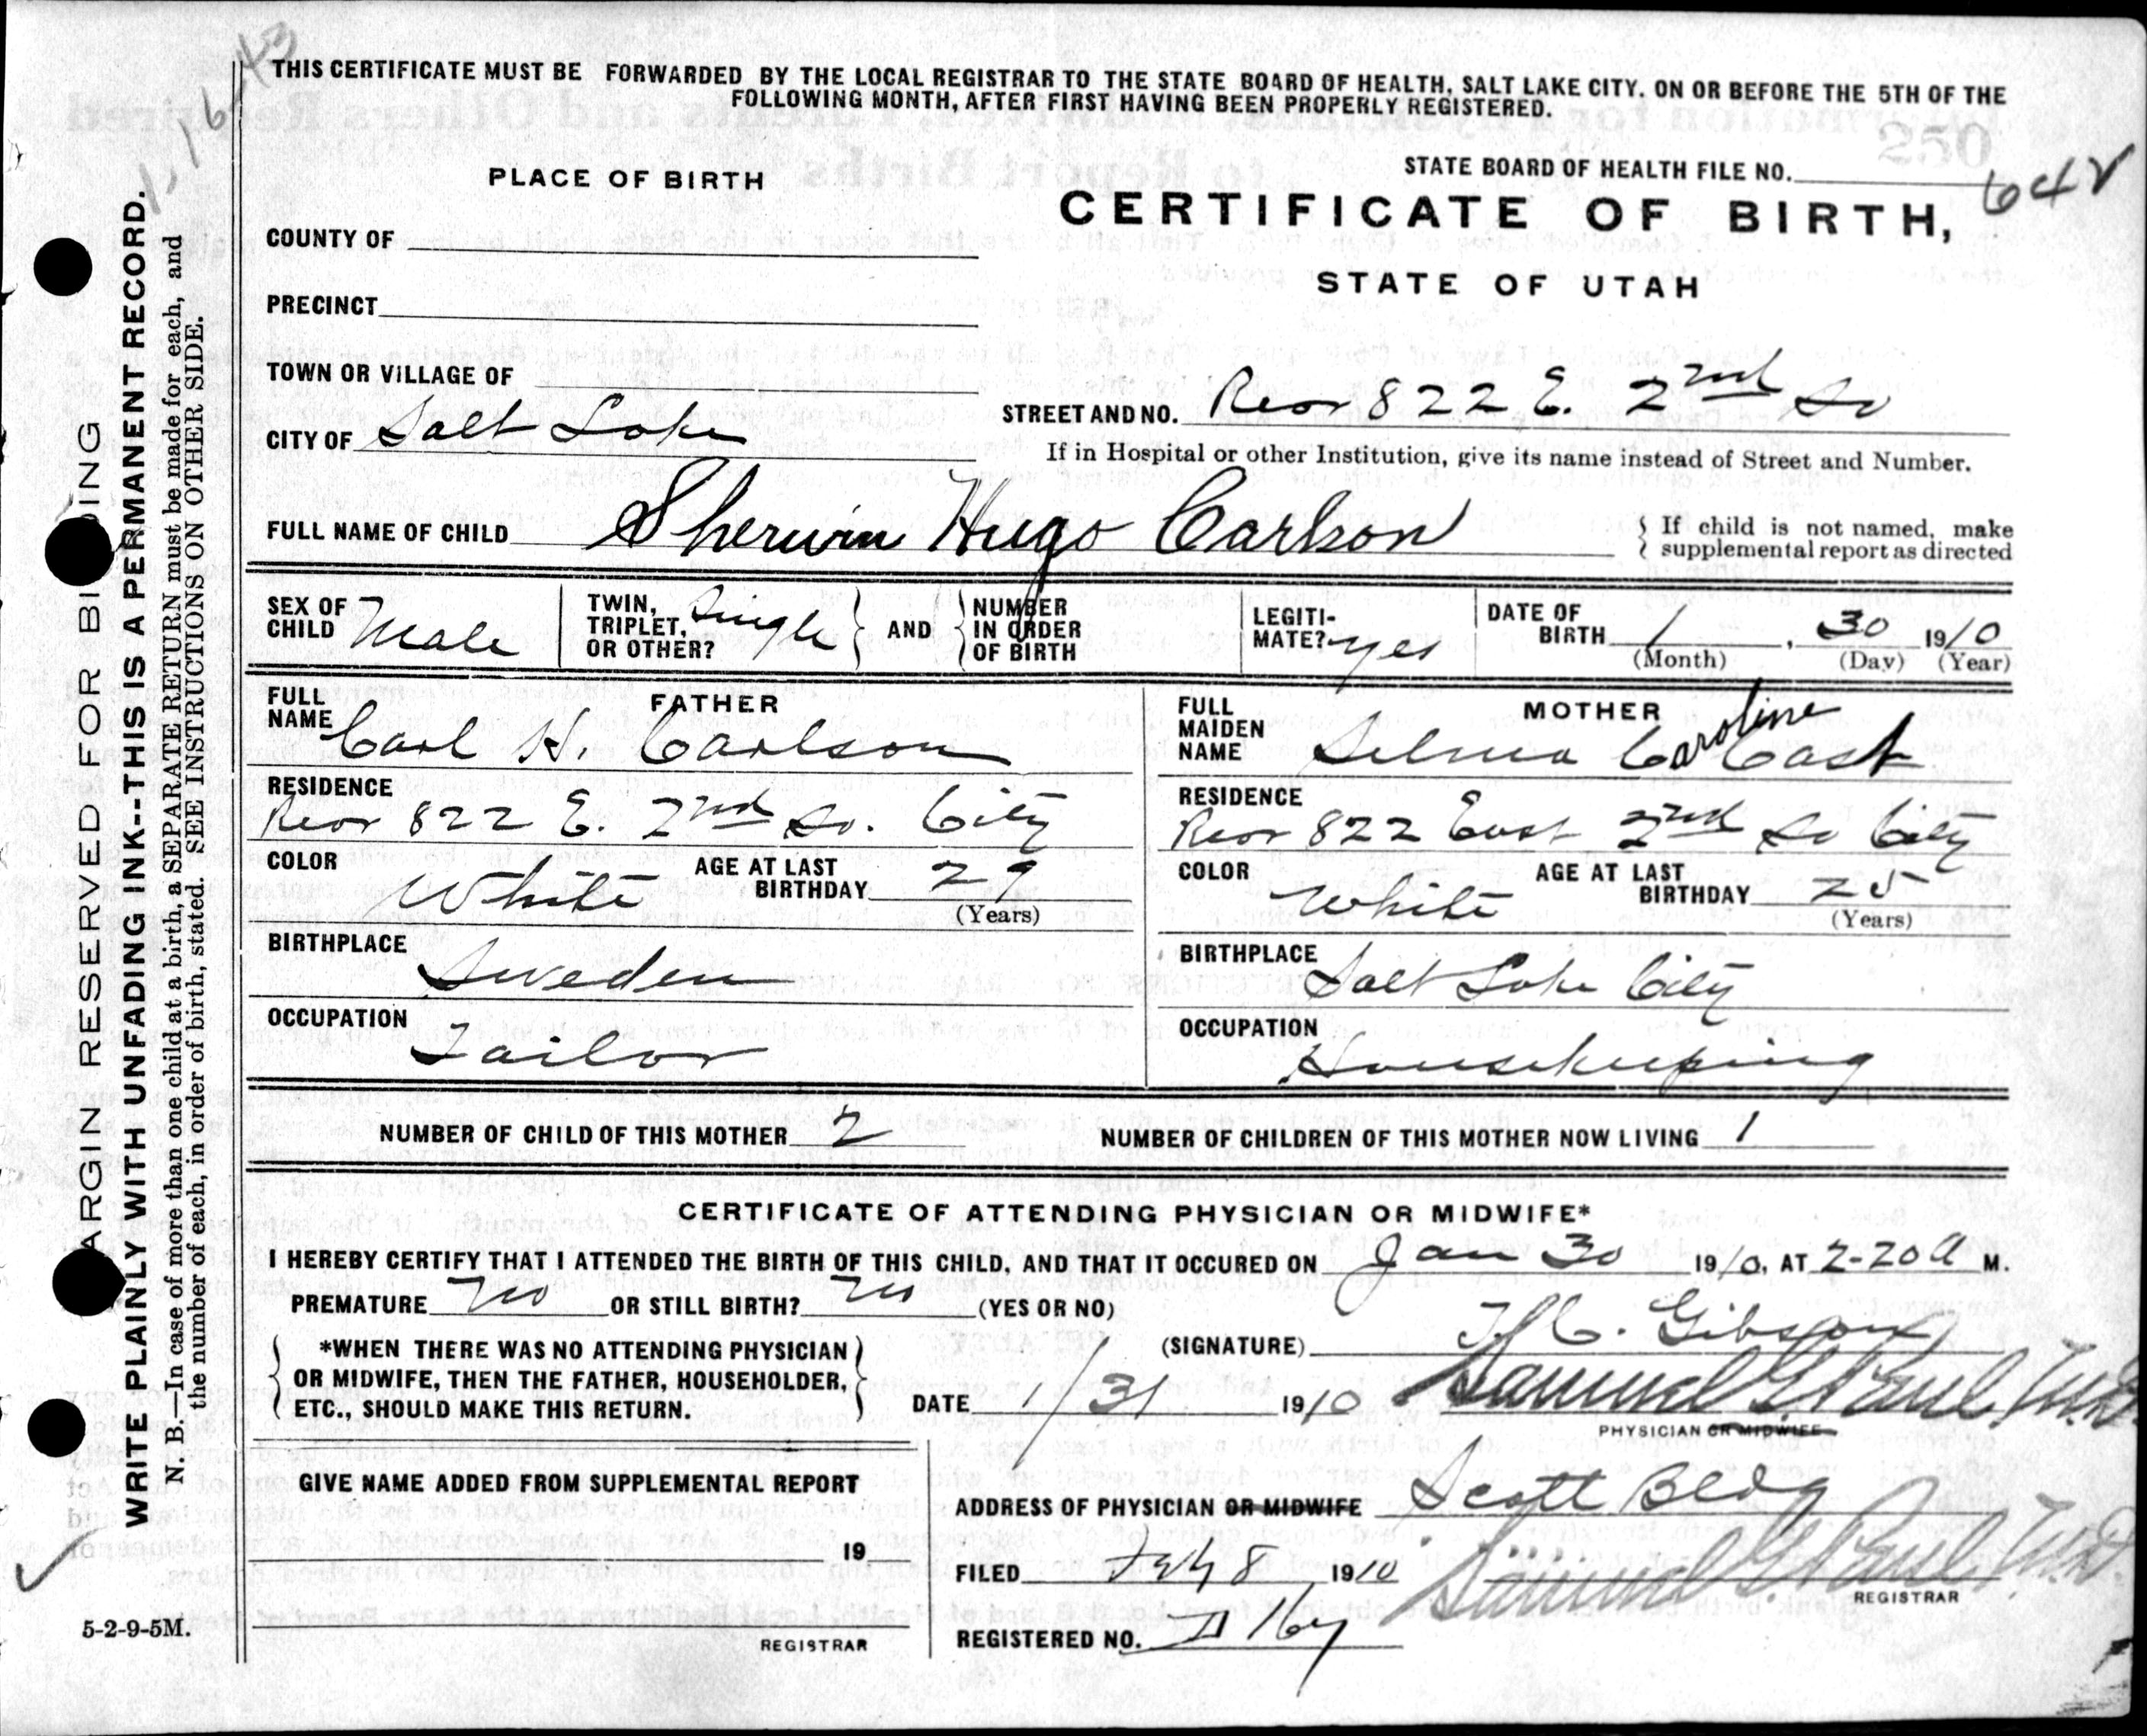 THIS CERTIFICATE MUST BE FORWARDED BY THE LOCAL REGISTRAR TO THE STATE BOARD OF HEALTH, SALT LAKE CITY, ON OR BEFORE THE 5TH OF THE
FOLLOWING MONTH, AFTER FIRST HAVING BEEN PROPERLY REGISTERED.
PLACE OF BIRTH
STATE BOARD OF HEALTH FILE NO. 642
CERTIFICATE OF BIRTH,
STATE OF UTAH
COUNTY OF
PRECINCT
TOWN OR VILLAGE OF
CITY OF Salt Lake
STREET AND NO. Rear 822 E. 2nd So
If in Hospital or other Institution, give its name instead of Street and Number.
FULL NAME OF CHILD Sherwin Hugo Carlson
If child is not named, make
supplemental report as directed
SEX OF CHILD Male
TWIN, TRIPLET, OR OTHER? Single
AND
NUMBER IN ORDER OF BIRTH
LEGITIMATE? yes
DATE OF BIRTH 1, 30 1910
(Month) (Day) (Year)
FATHER
FULL NAME Carl H. Carlson
RESIDENCE
Rear 822 E. 2nd So. City
COLOR White
AGE AT LAST BIRTHDAY 29
(Years)
BIRTHPLACE
Sweden
OCCUPATION
Tailor
MOTHER
FULL MAIDEN NAME Selma Caroline Cast
RESIDENCE
Rear 822 East 2nd So City
COLOR White
AGE AT LAST BIRTHDAY 25
(Years)
BIRTHPLACE
Salt Lake City
OCCUPATION
Housekeeping
NUMBER OF CHILD OF THIS MOTHER 2
NUMBER OF CHILDREN OF THIS MOTHER NOW LIVING 1
CERTIFICATE OF ATTENDING PHYSICIAN OR MIDWIFE*
I HEREBY CERTIFY THAT I ATTENDED THE BIRTH OF THIS CHILD, AND THAT IT OCCURED ON Jan 30 1910, AT 2-20 a M.
PREMATURE No OR STILL BIRTH? No (YES OR NO)
*WHEN THERE WAS NO ATTENDING PHYSICIAN
OR MIDWIFE, THEN THE FATHER, HOUSEHOLDER,
ETC., SHOULD MAKE THIS RETURN.
(SIGNATURE) Gibson
DATE 1/31 1910
Samuel G. Paul, M.D.
PHYSICIAN OR MIDWIFE
GIVE NAME ADDED FROM SUPPLEMENTAL REPORT
19
REGISTRAR
ADDRESS OF PHYSICIAN OR MIDWIFE Scott Bldg
FILED Feb 8 1910
Samuel G. Paul, M.D.
REGISTRAR
REGISTERED NO.
MARGIN RESERVED FOR BINDING
WRITE PLAINLY WITH UNFADING INK--THIS IS A PERMANENT RECORD.
N. B.—In case of more than one child at a birth, a SEPARATE RETURN must be made for each, and
the number of each, in order of birth, stated. SEE INSTRUCTIONS ON OTHER SIDE.
5-2-9-5M.